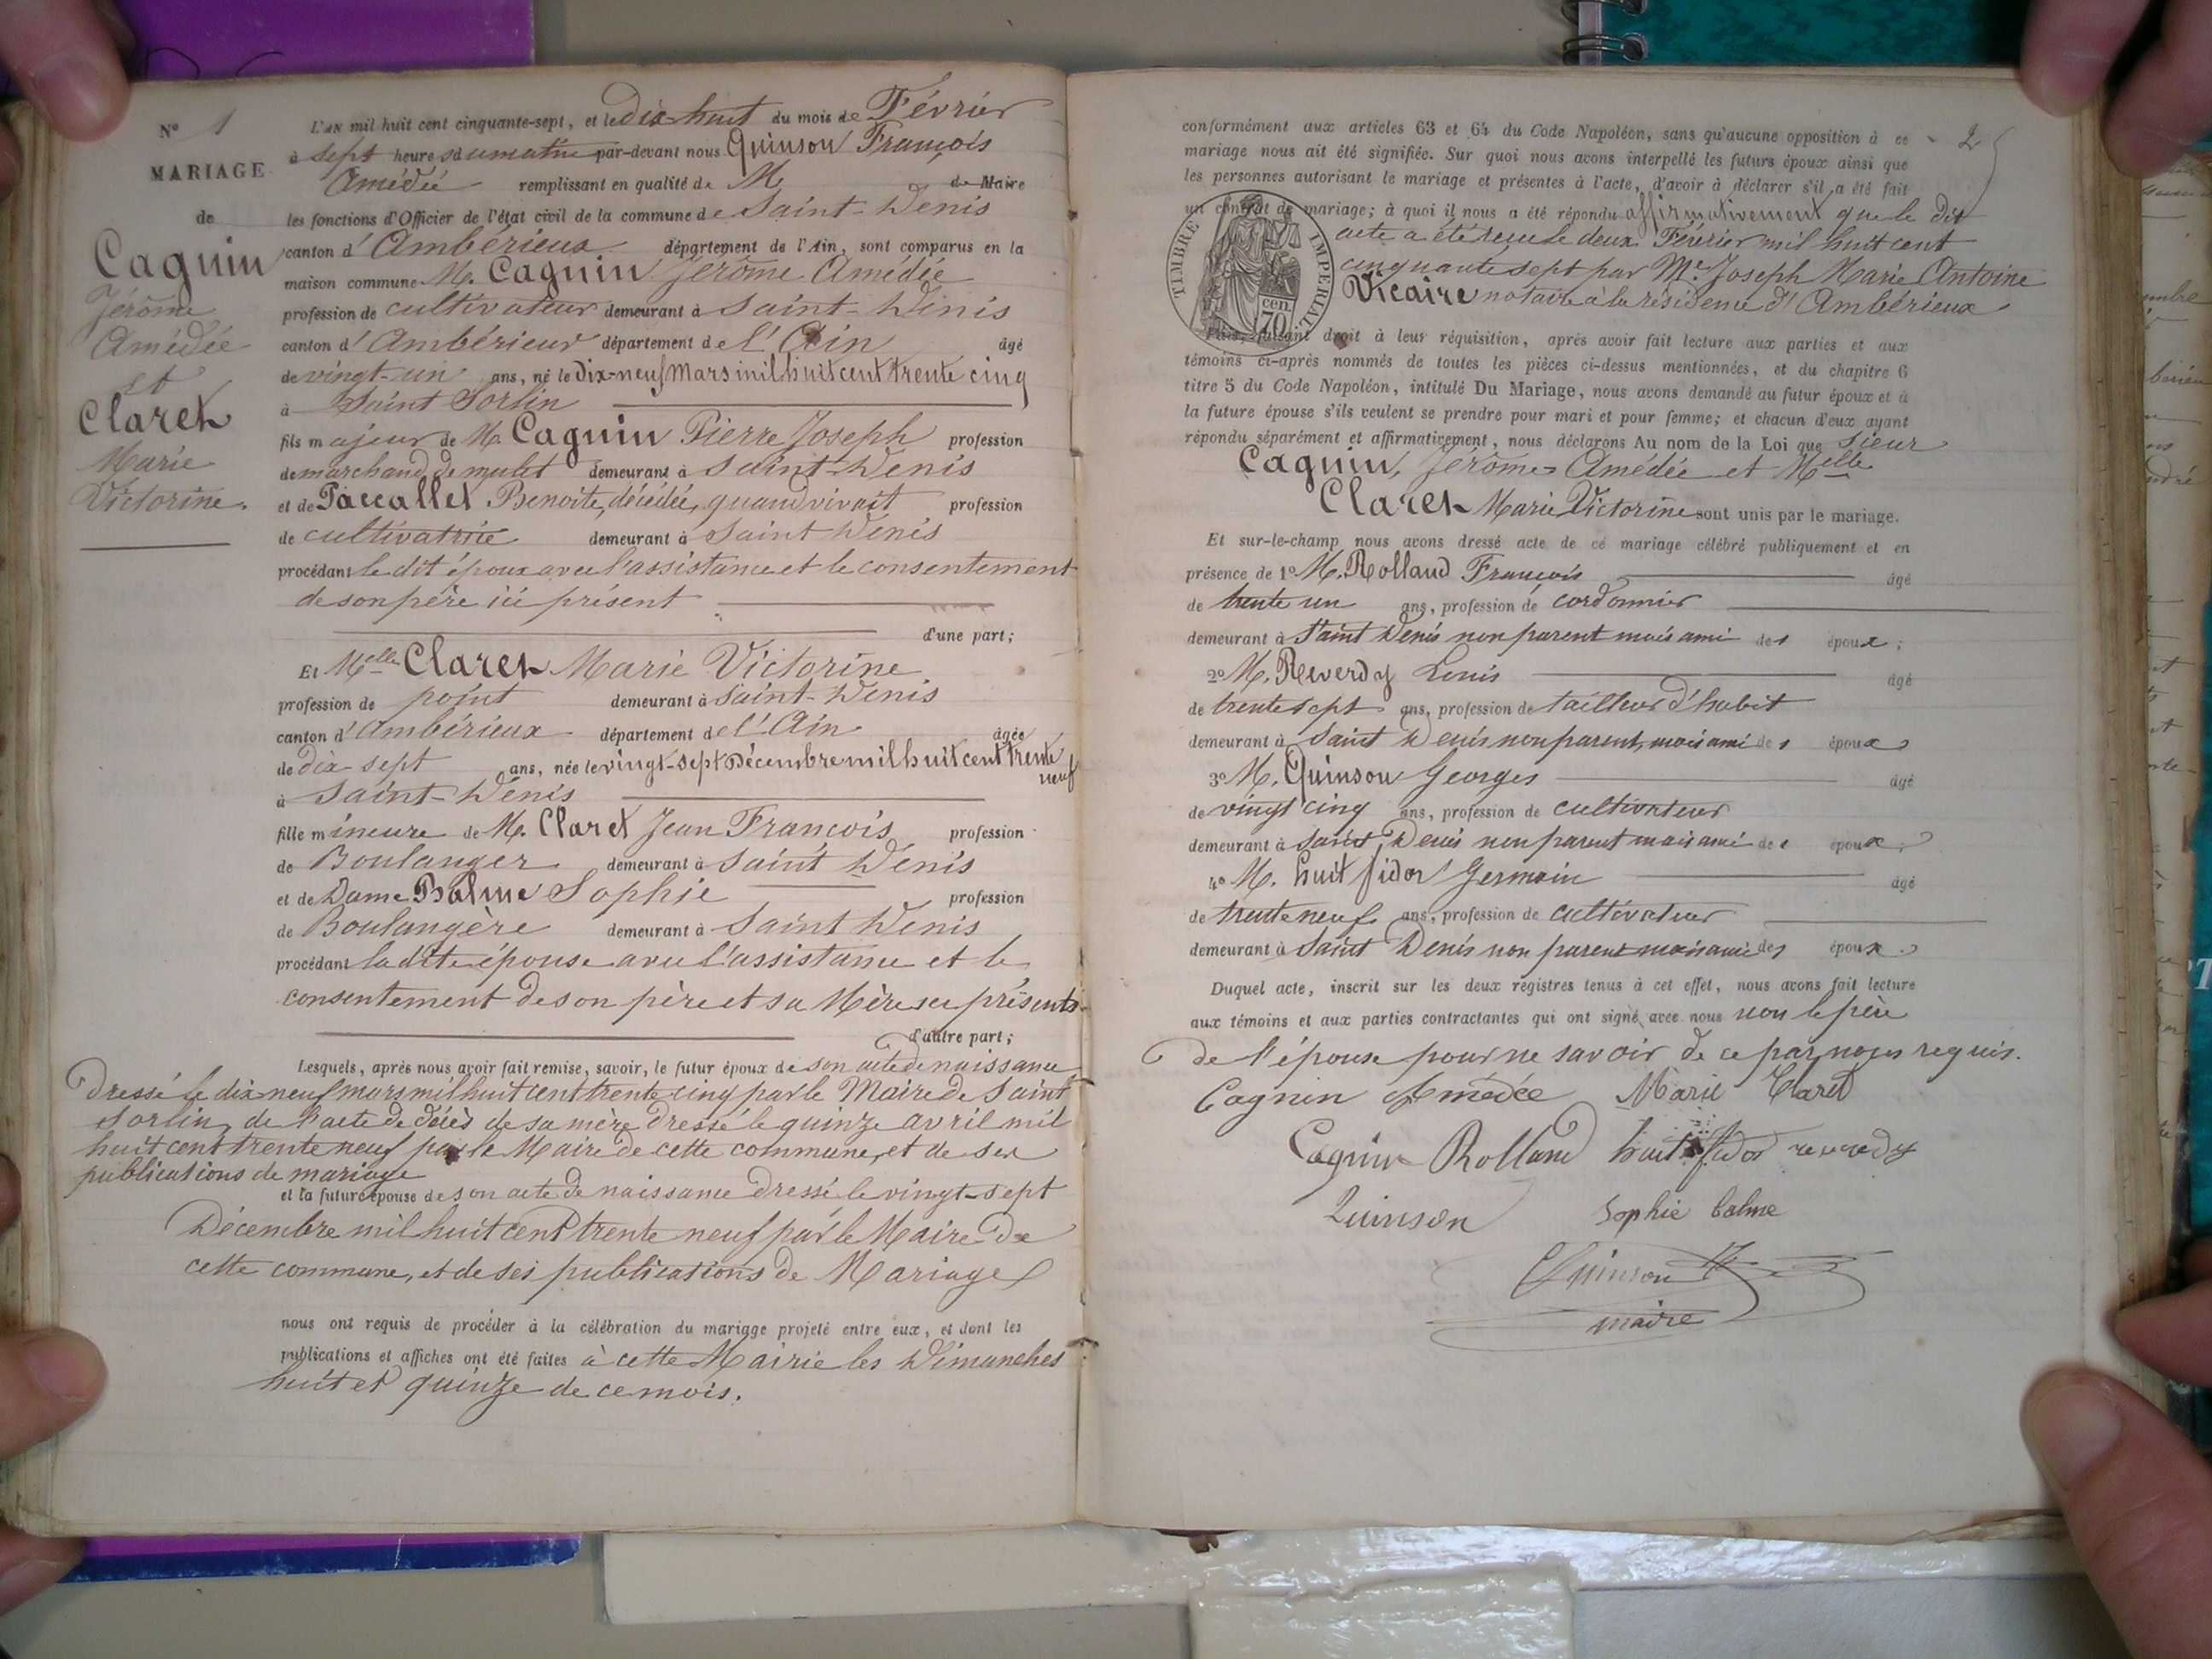 N° 1
MARIAGE
de
Cagnin
Jérôme
Amédée
et
Claret
Marie
Victorine.
L'AN mil huit cent cinquante-sept, et le Dix huit du mois de Février
à sept heures du matin par-devant nous Quinson François
Amédée remplissant en qualité de M de Maire
les fonctions d'Officier de l'état civil de la commune de Saint-Denis
canton d'Ambérieux département de l'Ain, sont comparus en la
maison commune M. Cagnin Jérôme Amédée
profession de cultivateur demeurant à Saint-Denis
canton d'Ambérieux département de l'Ain âgé
de vingt-un ans, né le Dix-neuf Mars mil huit cent trente cinq
à Saint Sorlin
fils majeur de M. Cagnin Pierre Joseph profession
de marchand de mulet demeurant à Saint-Denis
et de Paccallet Benoite, décédée, quand vivait profession
de cultivatrice demeurant à Saint Denis
procédant le dit époux avec l'assistance et le consentement
de son père ici présent
d'une part;
Et Melle Claret Marie Victorine
profession de point demeurant à Saint-Denis
canton d'Ambérieux département de l'Ain âgée
de dix-sept ans, née le vingt-sept Décembre mil huit cent trente
neuf
à Saint-Denis
fille mineure de M. Claret Jean François profession
de Boulanger demeurant à Saint Denis
et de Dame Balme Sophie profession
de Boulangère demeurant à Saint Denis
procédant la dite épouse avec l'assistance et le
consentement de son père et sa Mère ici présents
d'autre part;
Lesquels, après nous avoir fait remise, savoir, le futur époux de son acte de naissance
Dressé le dix neuf mars mil huit cent trente cinq par le Maire de Saint
Sorlin, de l'acte de décès de sa mère Dressé le quinze avril mil
huit cent trente neuf par le Maire de cette commune, et de ses
publications de mariage
et la future épouse de son acte de naissance Dressé le vingt-sept
Décembre mil huit cent trente neuf par le Maire de
cette commune, et de ses publications de Mariage
nous ont requis de procéder à la célébration du mariage projeté entre eux, et dont les
publications et affiches ont été faites à cette Mairie les Dimanches
huit et quinze de ce mois.
2
conformément aux articles 63 et 64 du Code Napoléon, sans qu'aucune opposition à ce
mariage nous ait été signifiée. Sur quoi nous avons interpellé les futurs époux ainsi que
les personnes autorisant le mariage et présentes à l'acte, d'avoir à déclarer s'il a été fait
un contrat de mariage; à quoi il nous a été répondu affirmativement que le dit
acte a été reçu le deux Février mil huit cent
cinquante sept par Me Joseph Marie Antoine
Vicaire notaire à la résidence d'Ambérieux
TIMBRE IMPERIAL
70 cen
Puis, faisant droit à leur réquisition, après avoir fait lecture aux parties et aux
témoins ci-après nommés de toutes les pièces ci-dessus mentionnées, et du chapitre 6
titre 5 du Code Napoléon, intitulé Du Mariage, nous avons demandé au futur époux et à
la future épouse s'ils veulent se prendre pour mari et pour femme; et chacun d'eux ayant
répondu séparément et affirmativement, nous déclarons Au nom de la Loi que Sieur
Cagnin, Jérôme Amédée et Melle
Claret Marie Victorine sont unis par le mariage.
Et sur-le-champ nous avons dressé acte de ce mariage célébré publiquement et en
présence de 1° M. Rolland François âgé
de trente un ans, profession de cordonnier
demeurant à Saint Denis non parent mais ami des époux;
2° M. Reverdy Louis âgé
de trente sept ans, profession de tailleur d'habit
demeurant à Saint Denis non parent, mais ami des époux
3° M. Quinson Georges âgé
de vingt cinq ans, profession de cultivateur
demeurant à Saint Denis non parent mais ami des époux;
4° M. huit fidor Germain âgé
de trente neuf ans, profession de cultivateur
demeurant à Saint Denis non parent mais ami des époux.
Duquel acte, inscrit sur les deux registres tenus à cet effet, nous avons fait lecture
aux témoins et aux parties contractantes qui ont signé avec nous non le père
de l'épouse pour ne savoir de ce par nous requis.
Cagnin Amédée Marie Claret
Cagnin Rolland huit fidor reverdy
Quinson Sophie balme
Quinson
maire